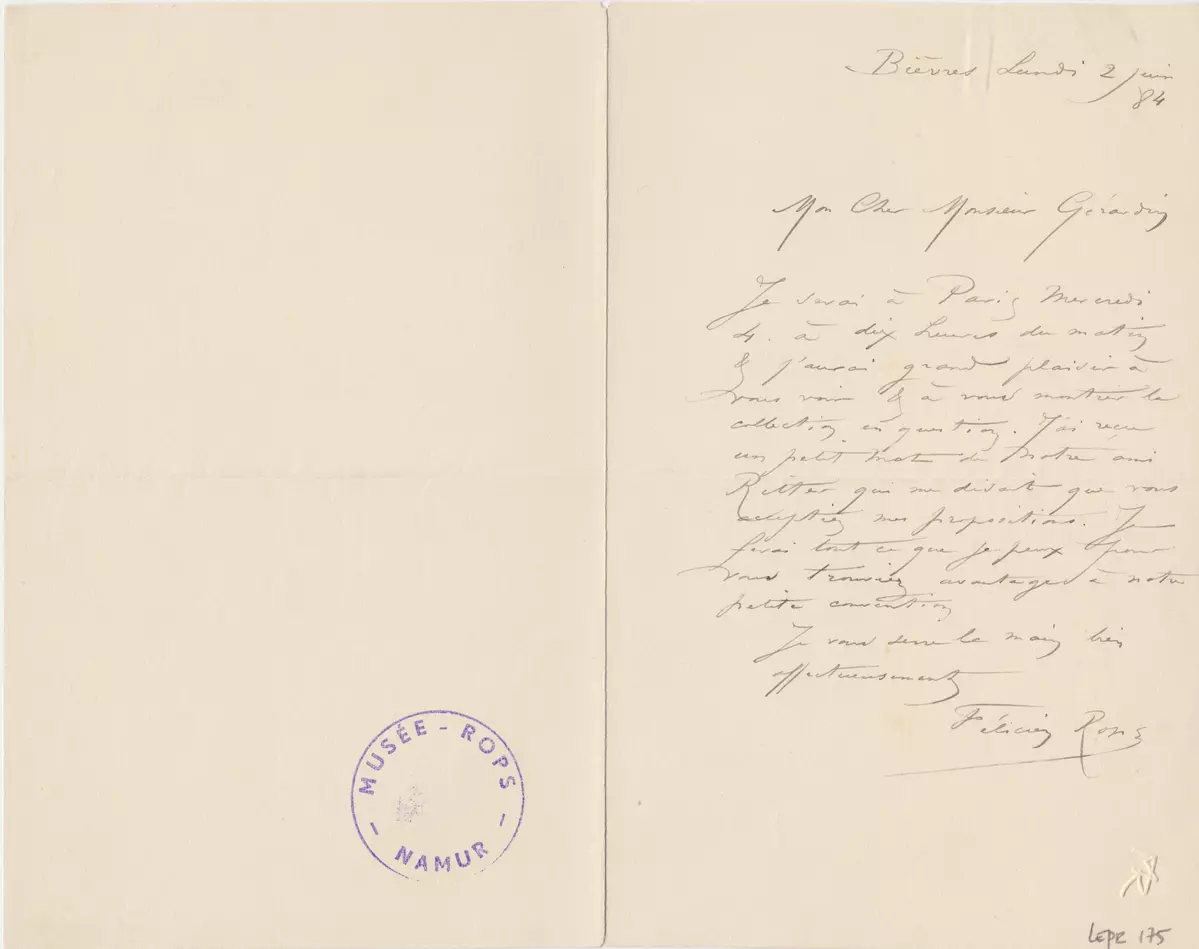 Bièvres Lundi 2 juin
84
Mon Cher Monsieur Gérardin
Je serai à Paris Mercredi
4. à dix heures du matin
& j'aurai grand plaisir à
vous voir & à vous montrer la
collection en question. J'ai reçu
un petit mot de notre ami
Ritter qui me disait que vous
acceptiez mes propositions. Je
ferai tout ce que je peux pour
vous trouviez avantages à notre
petite convention
Je vous serre la main bien
affectueusement
Félicien Rops
MUSÉE - ROPS
- NAMUR -
LEPR 175